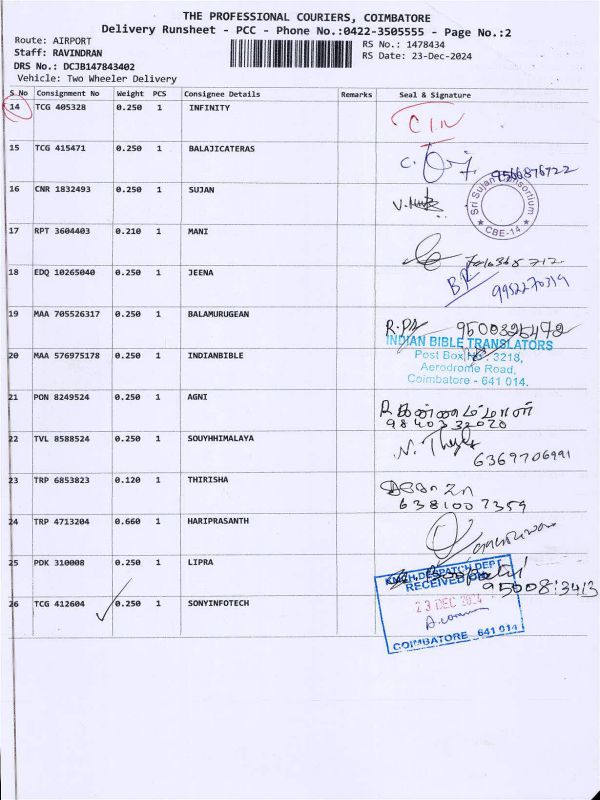 THE PROFESSIONAL COURIERS, COIMBATORE
Delivery Runsheet - PCC - Phone No.:0422-3505555 - Page No.:2
Route: AIRPORT
RS No.: 1478434
Staff: RAVINDRAN
RS Date: 23-Dec-2024
DRS No.: DCJB147843402
Vehicle: Two Wheeler Delivery
S No Consignment No Weight PCS Consignee Details Remarks Seal & Signature
14 TCG 405328 0.250 1 INFINITY
15 TCG 415471 0.250 1 BALAJICATERAS
9566876722
16 CNR 1832493 0.250 1 SUJAN
Sri Sujan Consortium
CBE-14
17 RPT 3604403 0.210 1 MANI
18 EDQ 10265040 0.250 1 JEENA
19 MAA 705526317 0.250 1 BALAMURUGEAN
20 MAA 576975178 0.250 1 INDIANBIBLE
INDIAN BIBLE TRANSLATORS
Post Box No: 3218,
Aerodrome Road,
Coimbatore - 641 014.
21 PON 8249524 0.250 1 AGNI
9840332020
22 TVL 8588524 0.250 1 SOUYHHIMALAYA
6369706991
23 TRP 6853823 0.120 1 THIRISHA
6381007359
24 TRP 4713204 0.660 1 HARIPRASANTH
25 PDK 310008 0.250 1 LIPRA
26 TCG 412604 0.250 1 SONYINFOTECH
DESPATCH DEPT
RECEIVED ON
23 DEC 2024
COIMBATORE - 641 014